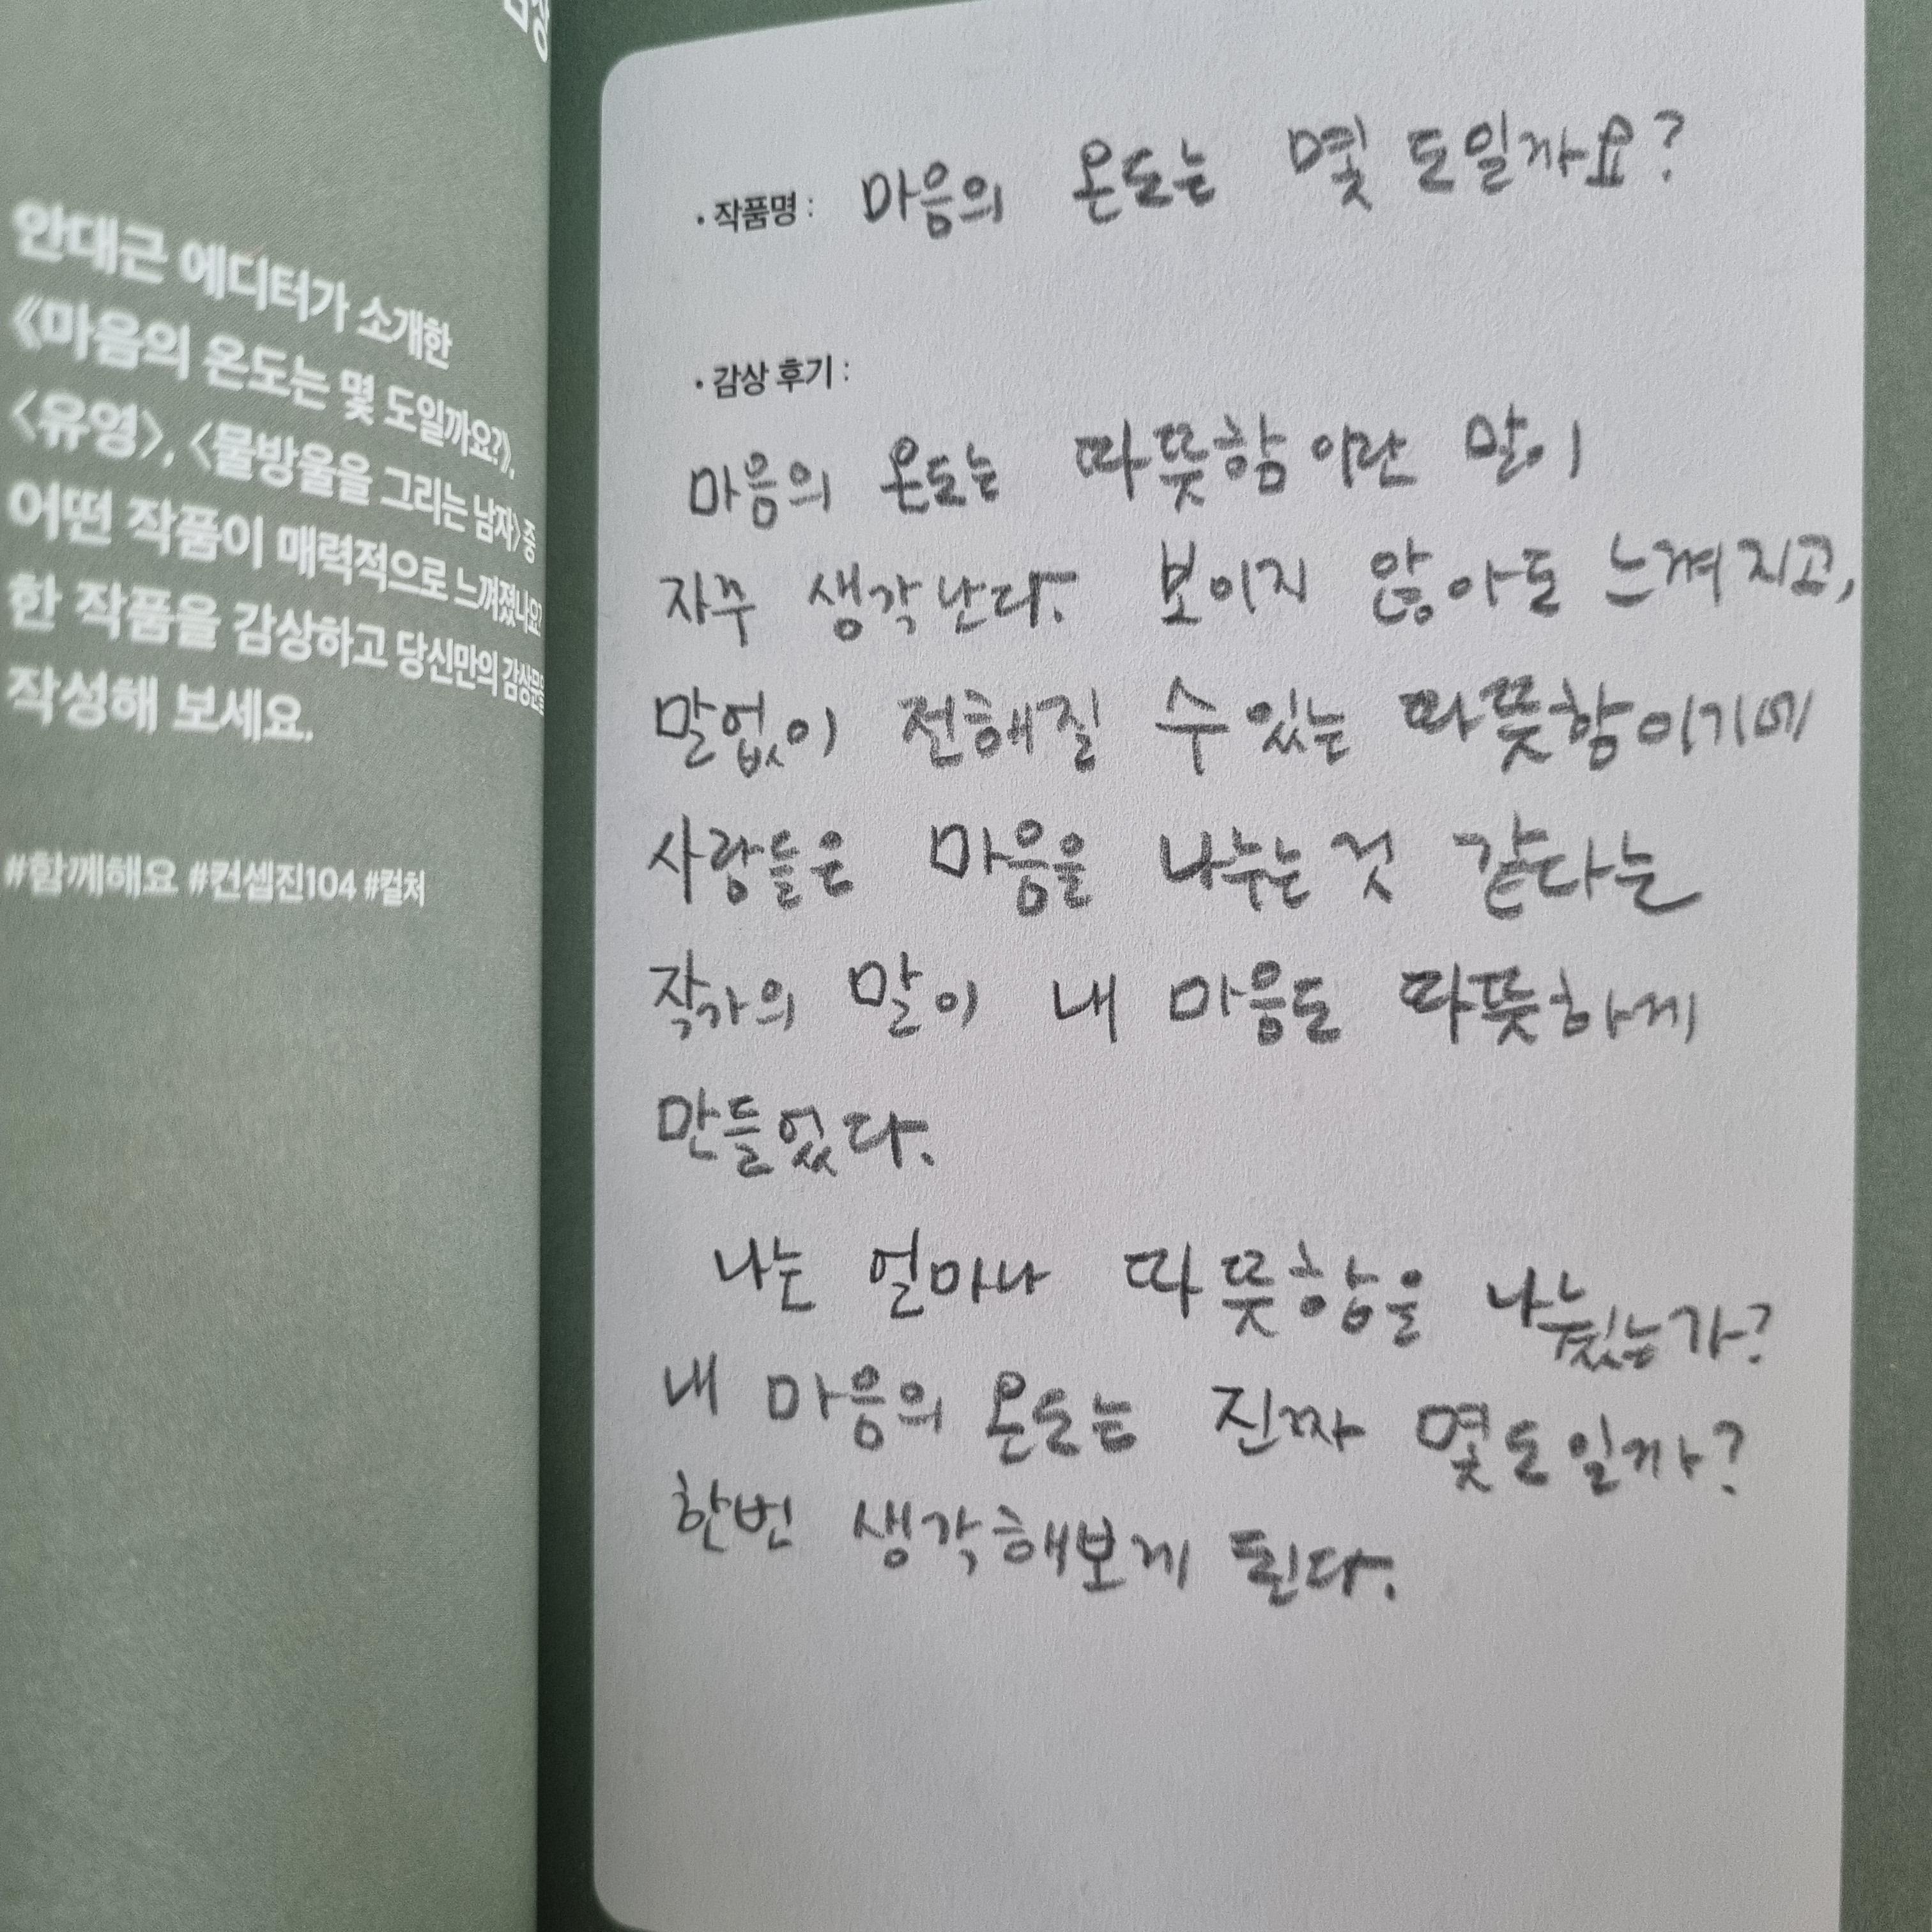 안대근 에디터가 소개한
《마음의 온도는 몇 도일까요?》,
<유영>, <물방울을 그리는 남자> 중
어떤 작품이 매력적으로 느껴졌나요?
한 작품을 감상하고 당신만의 감상문을
작성해 보세요.
#함께해요 #컨셉진104 #컬처
• 작품명 : 마음의 온도는 몇 도일까요?
• 감상 후기 :
마음의 온도는 따뜻함이란 말이
자꾸 생각난다. 보이지 않아도 느껴지고,
말없이 전해질 수 있는 따뜻함이기에
사람들은 마음을 나누는 것 같다는
작가의 말이 내 마음도 따뜻하게
만들었다.
나는 얼마나 따뜻함을 나눴는가?
내 마음의 온도는 진짜 몇도일까?
한번 생각해보게 된다.